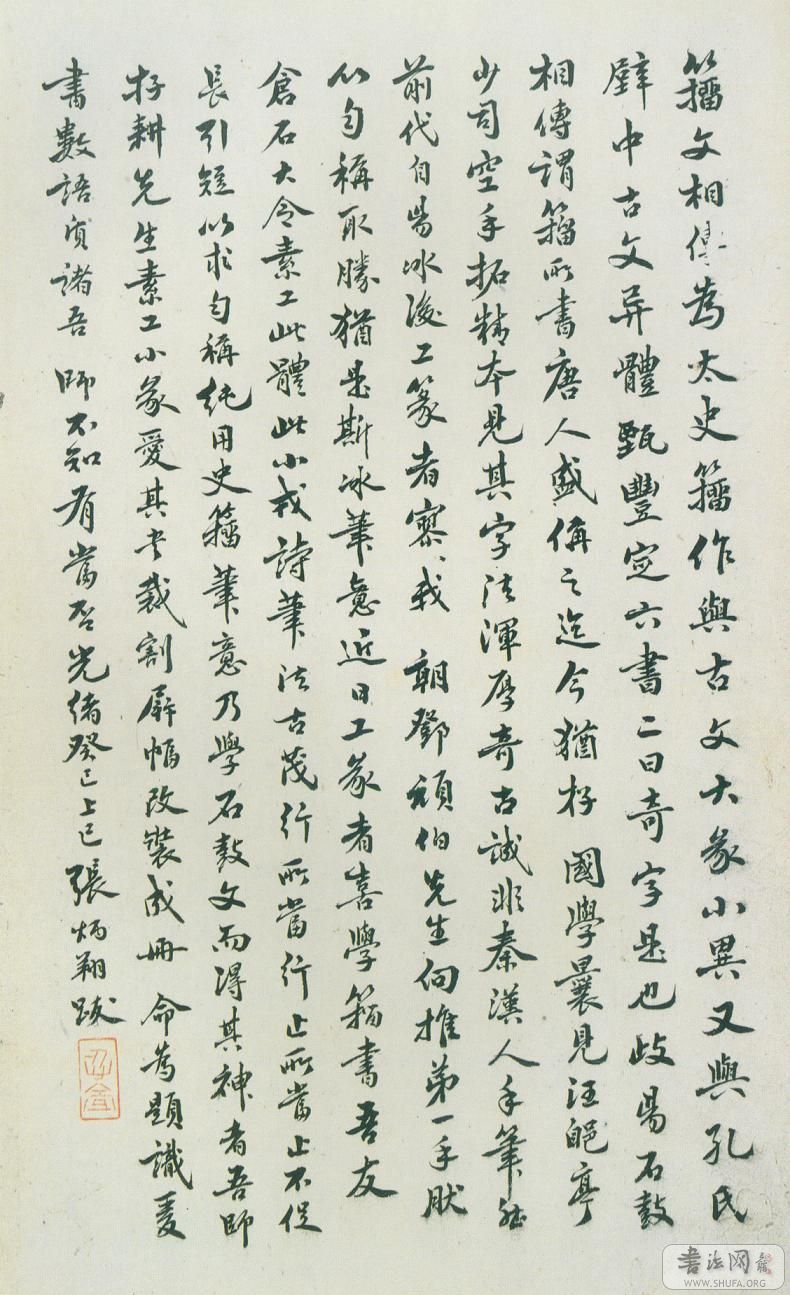 籀文相傳為太史籀作與古文大篆小異又與孔氏
壁中古文异體甄豐定六書二曰奇字是也歧陽石鼓
相傳謂籀所書唐人盛偁之迄今猶存 國學曩見汪郋亭
少司空手拓精本見其字法渾厚奇古誠非秦漢人手筆能
前代自陽冰後工篆者寥寥我 朝鄧頑伯先生向推第一手肰
以勻稱取勝猶是斯冰筆意近日工篆者喜學籀書吾友
倉石大令素工此體此小戎詩筆法古茂行所當行止所當止不促
長引短以求勻稱純用史籀筆意乃學石鼓文而得其神者吾師
存耕先生素工小篆愛其書裁割屏幅改裝成冊 命為題識爰
書數語質諸吾 師不知有當否光緒癸巳上巳張炳翔跋
書法网
WWW.SHUFA.ORG